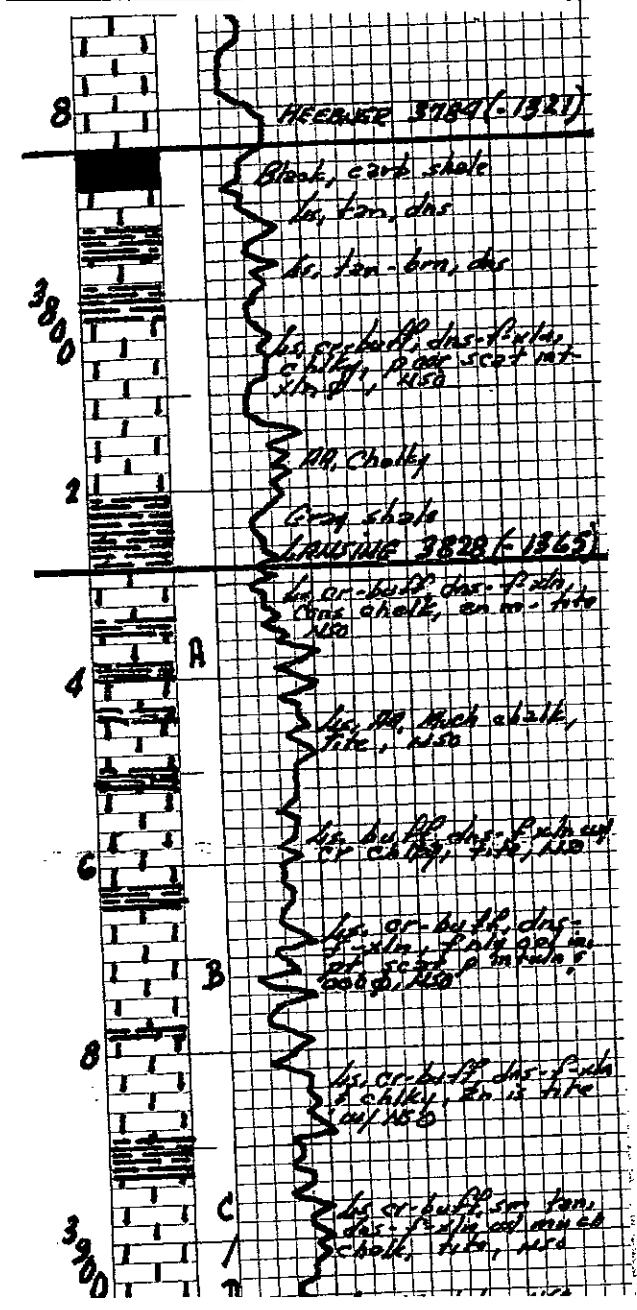 8
HEEBNER 3784 (-1321)
Black, carb shale
Ls, tan, dns
Ls, tan-brn, dns
3800
Ls, cr-buff, dns-f-xln,
chlky, poor scat int-
xln ϕ, NSO
AA, Chalky
2
Gray shale
LANSING 3828 (-1365)
Ls, cr-buff, dns-f-xln,
cons chalk, zn m-tite
NSO
A
4
Ls, AA, Much chalk,
Tite, NSO
Ls, buff, dns-f-xln w/
cr chlky, tite, NSO
6
Ls, cr-buff, dns-
f-xln, fnly ool in
pt, scat p intxln &
ooo ϕ, NSO
B
8
Ls, cr-buff, dns-f-xln
& chlky, Zn is tite
w/ NSO
C
Ls cr-buff, sm tan,
dns-f-xln w/ much
chalk, tite, NSO
/
3900
D
NSO